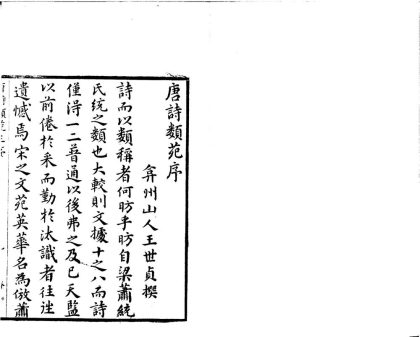 唐詩類苑序
弇州山人王世貞撰
詩而以類稱者何昉乎昉自梁蕭統
氏統之類也大較則文據十之八而詩
僅得一二普通以後弗之及已天監
以前倦於采而勤於汰識者往往
遺憾焉宋之文苑英華名為倣蕭